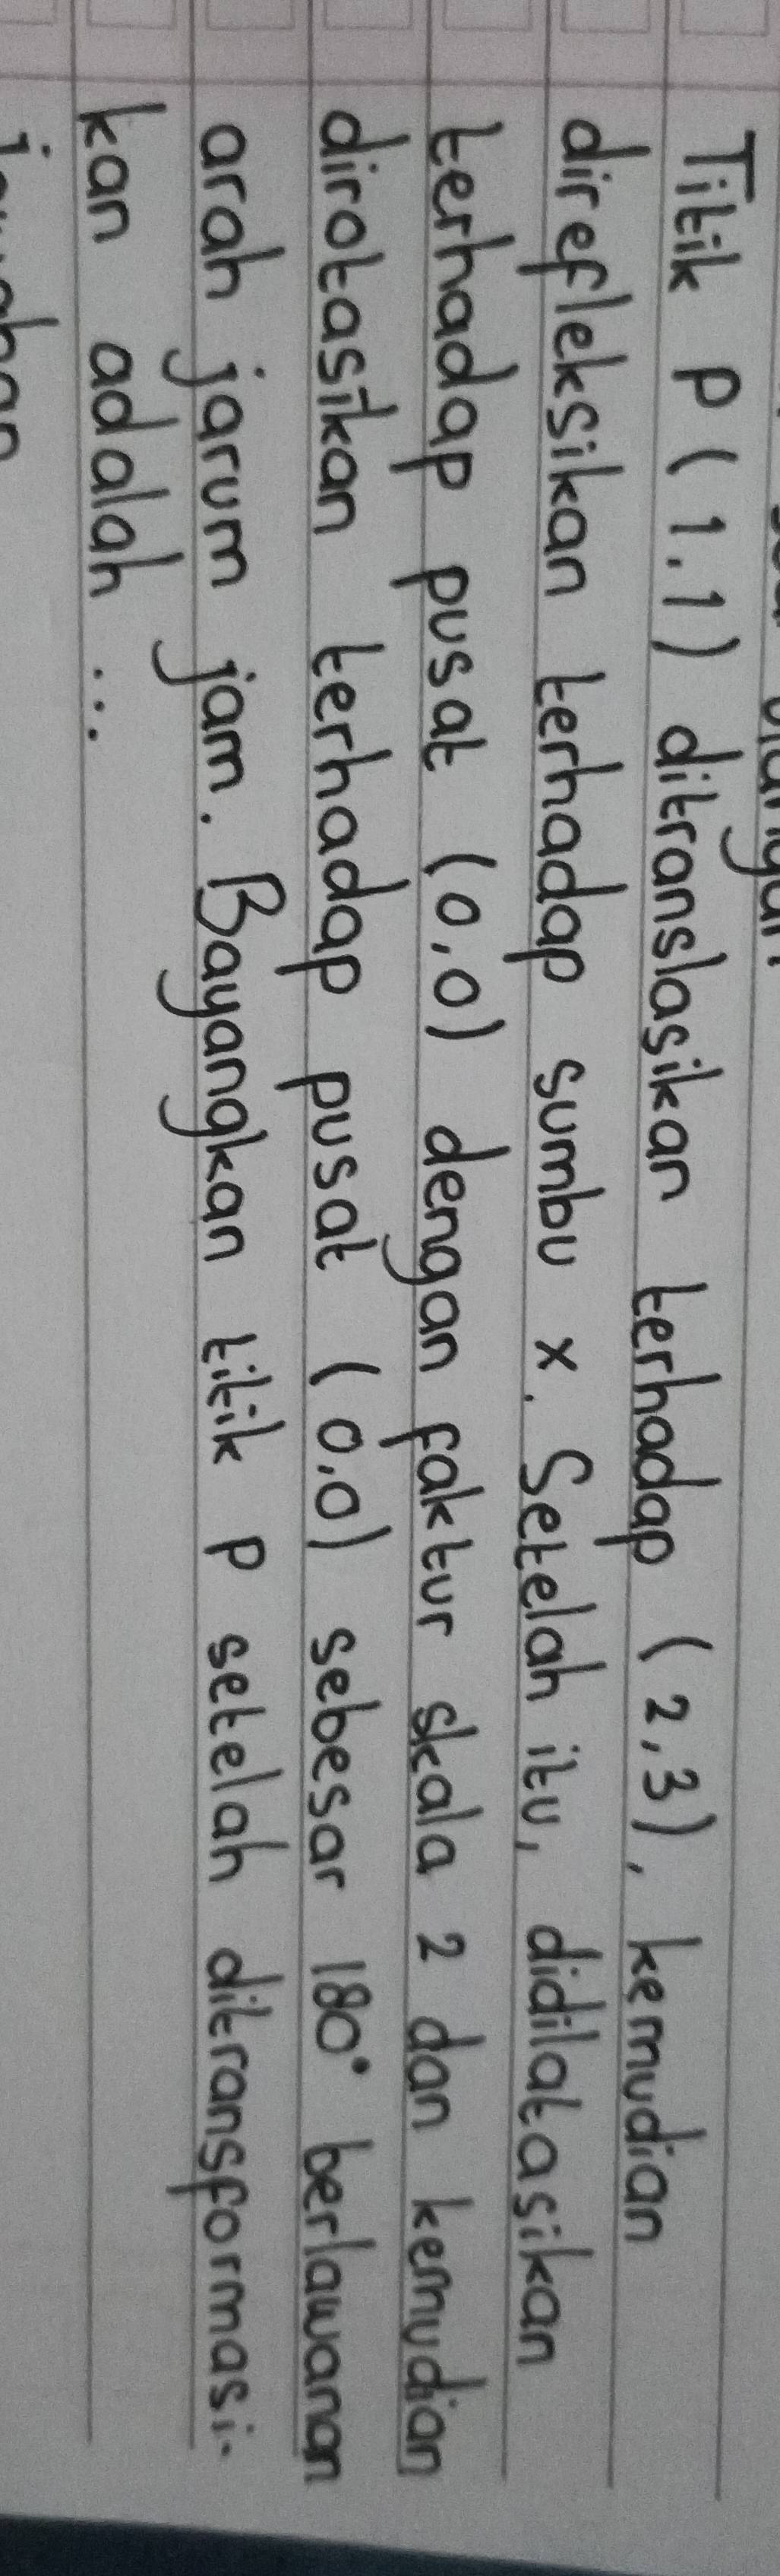 Titik P (1.1) ditranslasikan terhadap (2,3), kemudian
direfleksikan terhadap sumbu x. Setelah itu, didilatasikan
terhadap pusat (0,0) dengan faktur skala 2 dan kemudian
dirotasikan terhadap pusat (0,0) sebesar 180° berlawanan
arah jarum jam. Bayangkan titik P setelah ditransformasi-
kan adalah ...